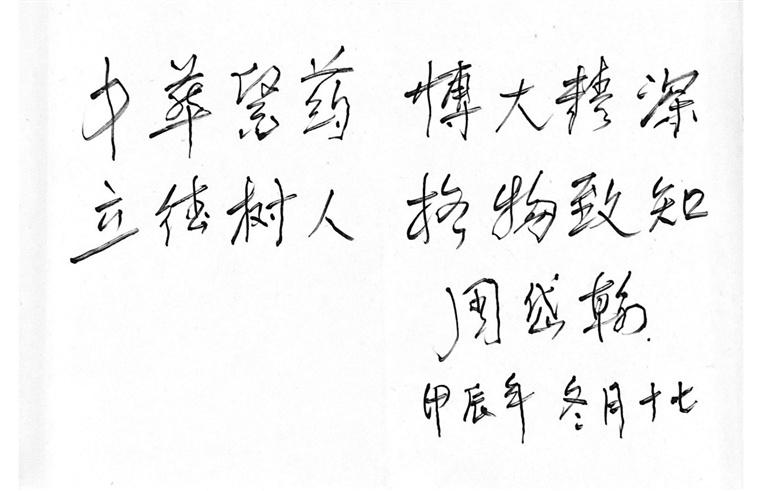 中华医药 博大精深
立德树人 格物致知
周岱翰
甲辰年 冬月十七